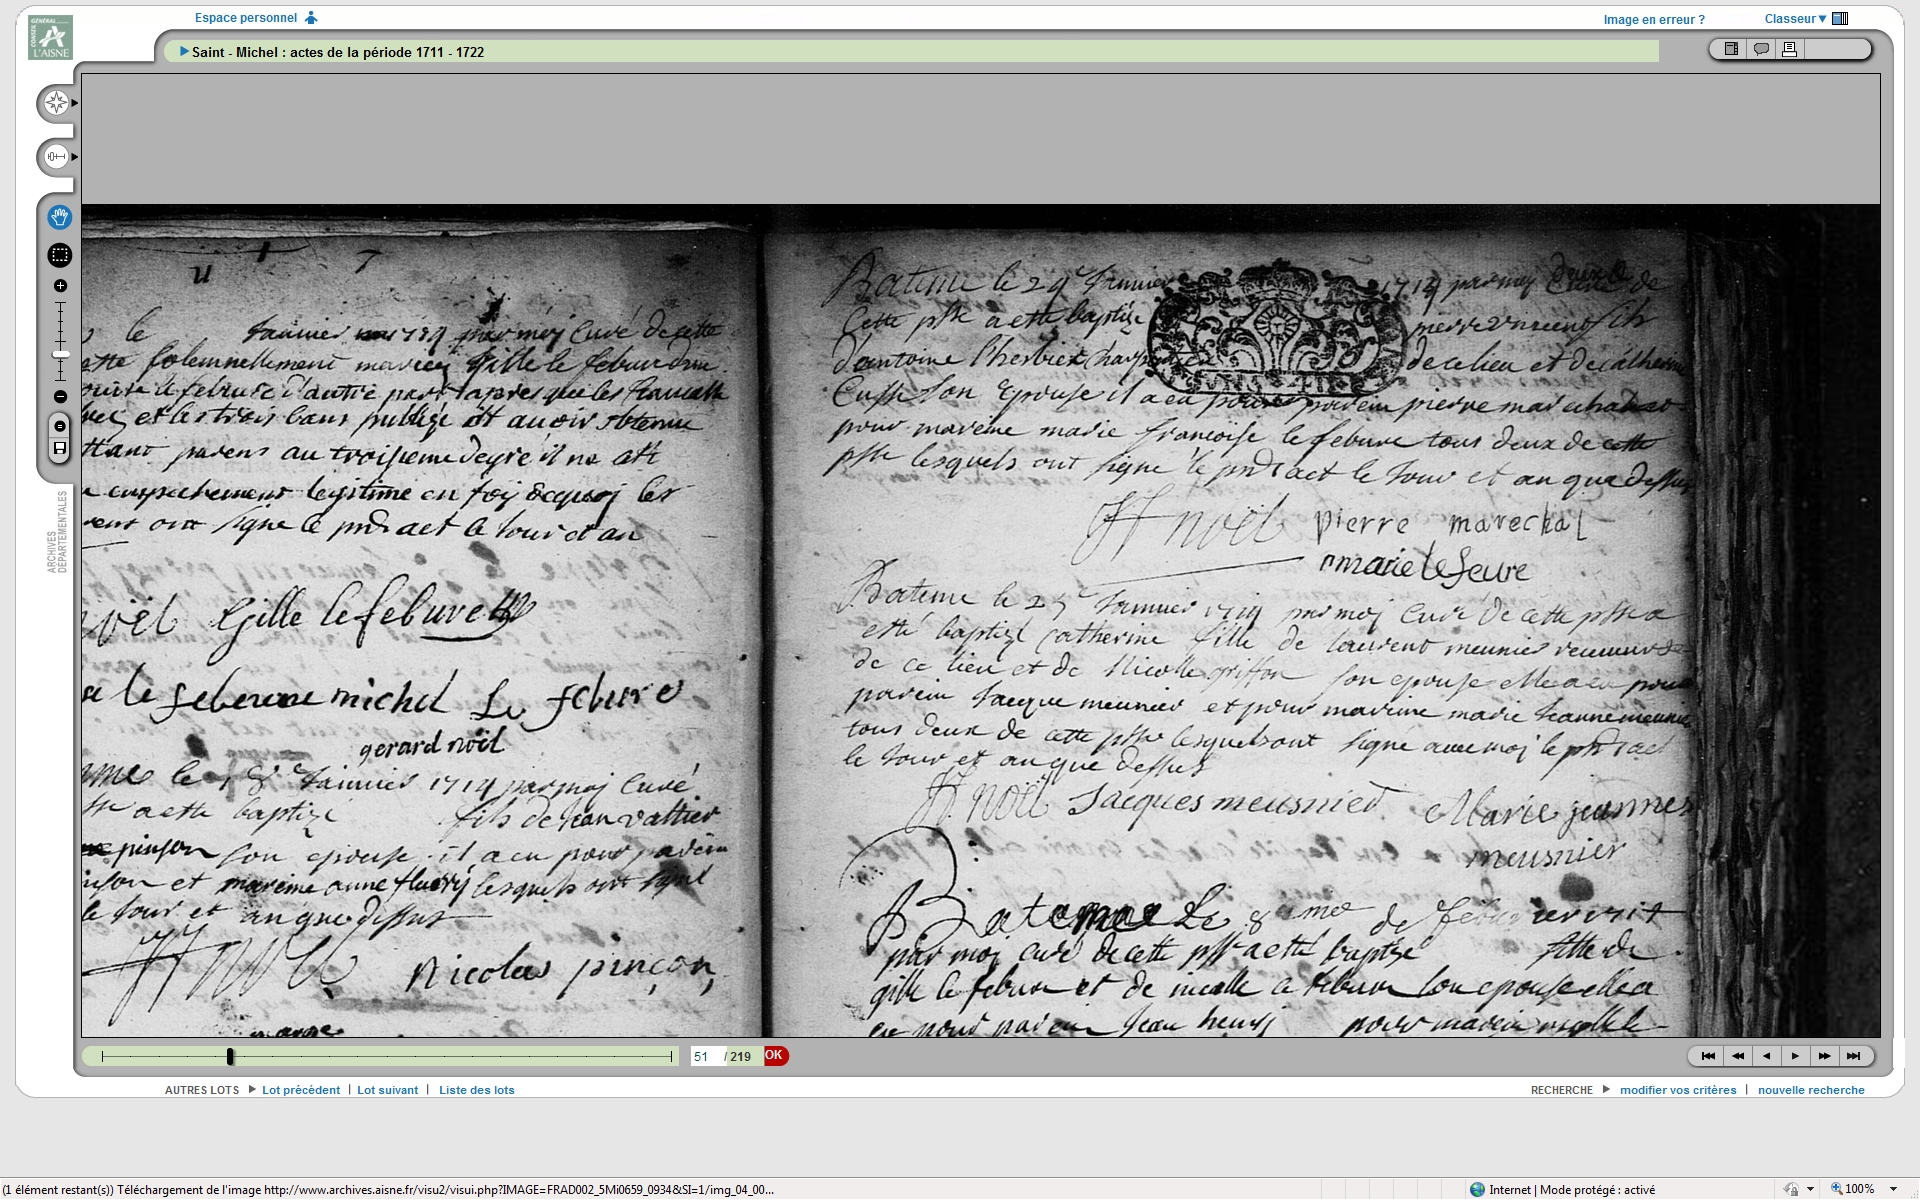 Espace personnel
Image en erreur ?
Classeur
CONSEIL GÉNÉRAL
L'AISNE
Saint - Michel : actes de la période 1711 - 1722
ARCHIVES
DÉPARTEMENTALES
le Janvier 1714 par moy Curé de cette
solemnellement Gille le febure
le febure d'autre part apres que les
et les trois bans publié et auoir obtenu
parens au troisieme degré il ne
empechement legitime en foy dequoy les
ont signe le pnt act le jour et an
noël Gille lefebure
le febure michel Le febure
gerard noël
le 18 Januier 1714 par moy Curé
a esté baptizé fils de Jean vattier
pinson son epouse il a eu pour parein
et mareine anne fluery lesquels ont signé
le jour et an que dessus
noël Nicolas pinçon
Bateme le 29 Januier 1714 par moy Curé de
Cette psse a esté baptizé pierre vincent fils
d'antoine l'herbier de ce lieu et de catherine
son Epouse il a eu pour parein pierre marechal et
pour mareine marie francoise le febure tous deux de cette
psse lesquels ont signé le pnt act le jour et an que dessus
noël pierre marechal
marie lefeure
Bateme le 25 Januier 1714 par moy Curé de cette psse a
esté baptizé Catherine fille de laurent meunier receueur
de ce lieu et de Nicolle griffon son epouse elle a eu pour
parein Jacque meunier et pour mareine marie Jeanne meunier
tous deux de cette psse lesquels ont signé auec moy le pnt act
le jour et an que dessus
noël Jacques meusnier Marie jeanne
meusnier
Bateme Le 8 me de feburier
par moy curé de cette psse a esté baptizé fille de
gille le febure et de nicolle le febure son epouse elle a
eu pour parein Jean henry pour marein nicolle le
51 / 219 OK
AUTRES LOTS Lot précédent | Lot suivant | Liste des lots
RECHERCHE modifier vos critères | nouvelle recherche
(1 élément restant(s)) Téléchargement de l'image http://www.archives.aisne.fr/visu2/visui.php?IMAGE=FRAD002_5Mi0659_0934&SI=1/img_04_00...
Internet | Mode protégé : activé
100%